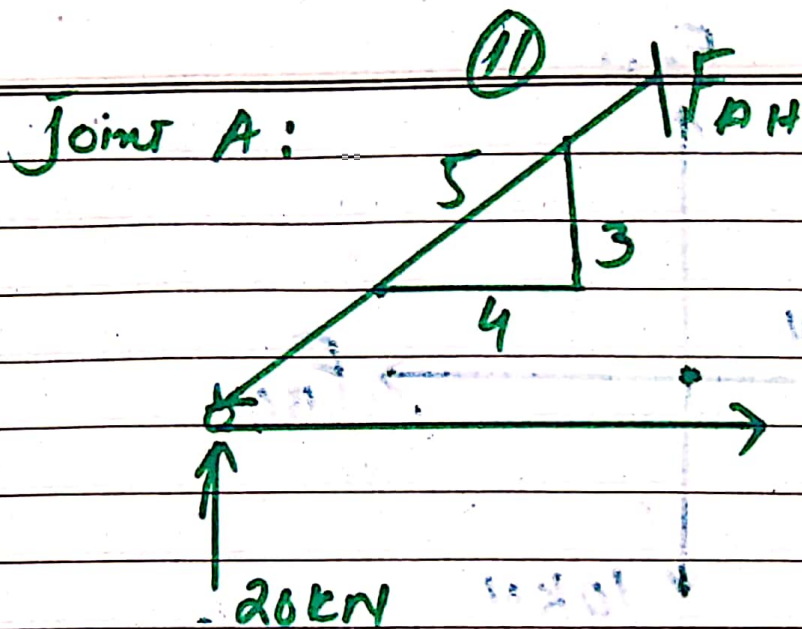 11
Joint A:
F AH
5
3
4
20kN